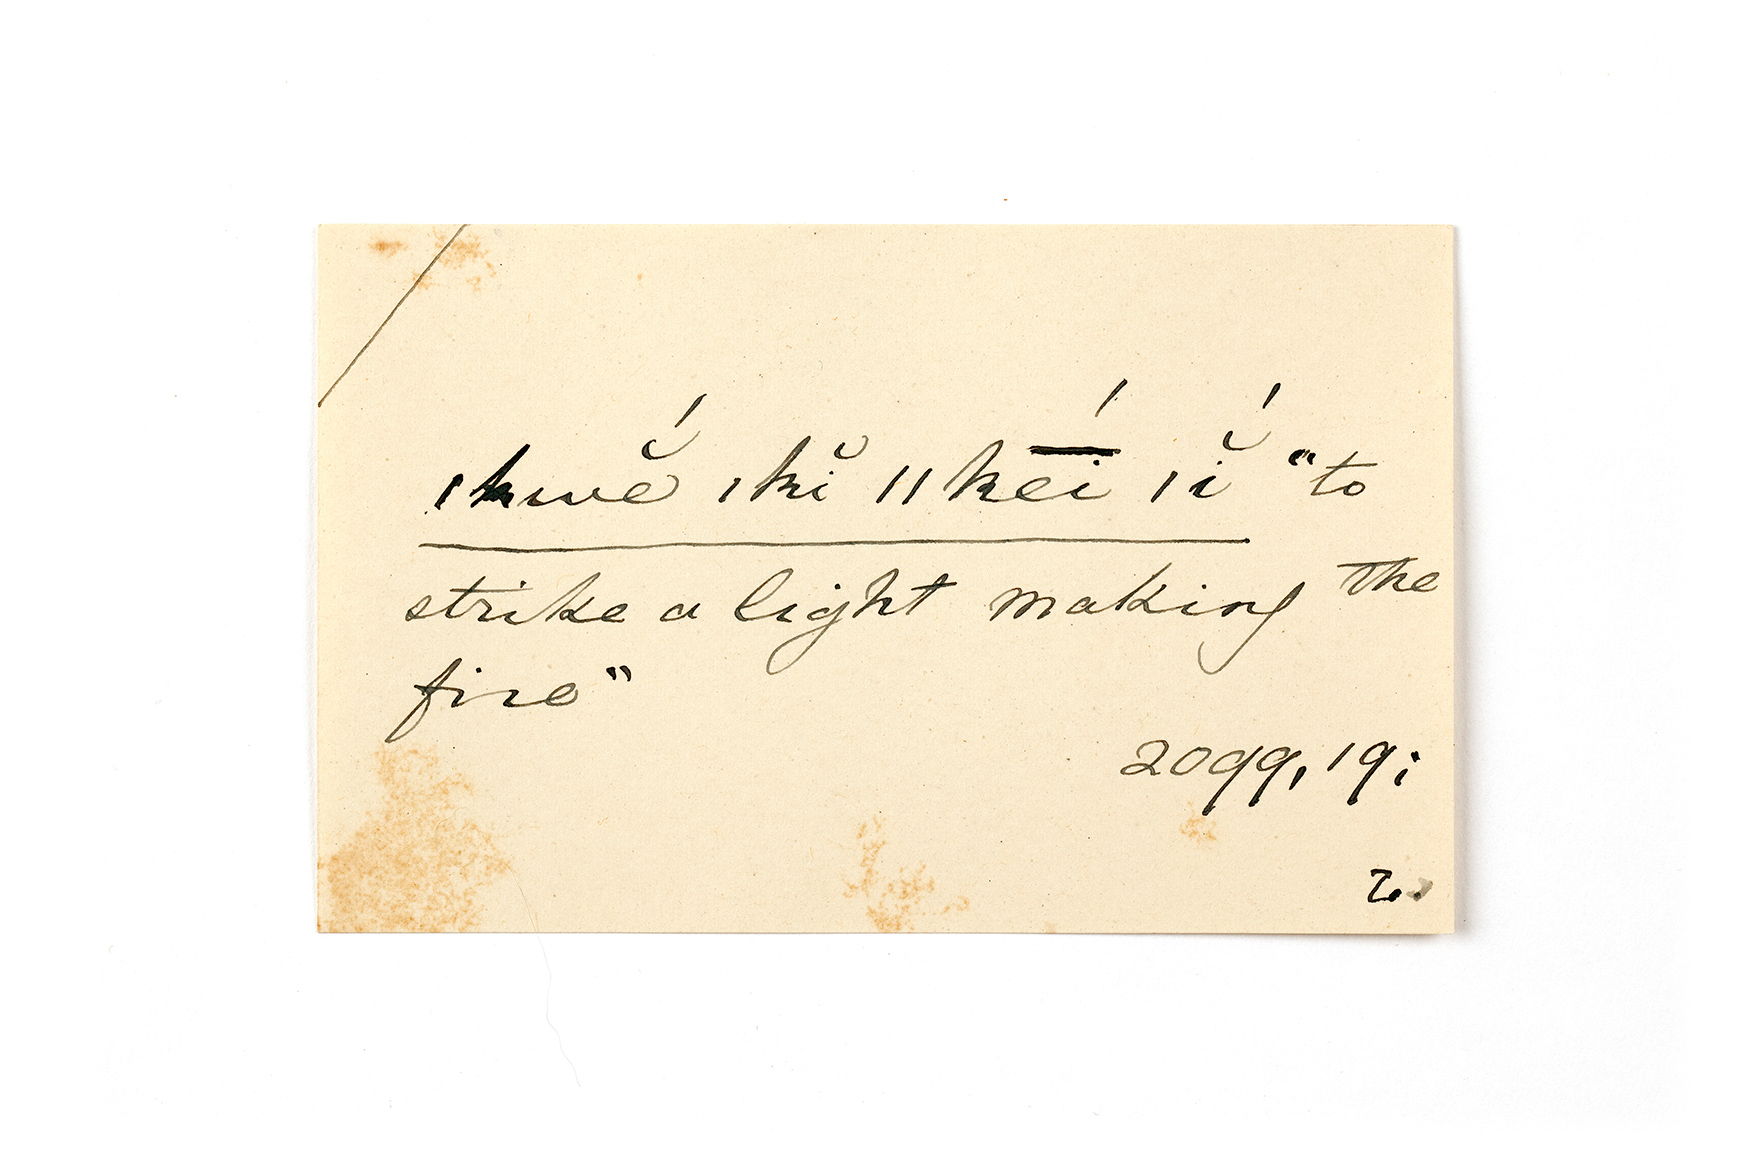 ǀkwĕ́ ǀkĭ ǁke͞í ǀĭ́ "to
strike a light making the
fire"
2099, 19;